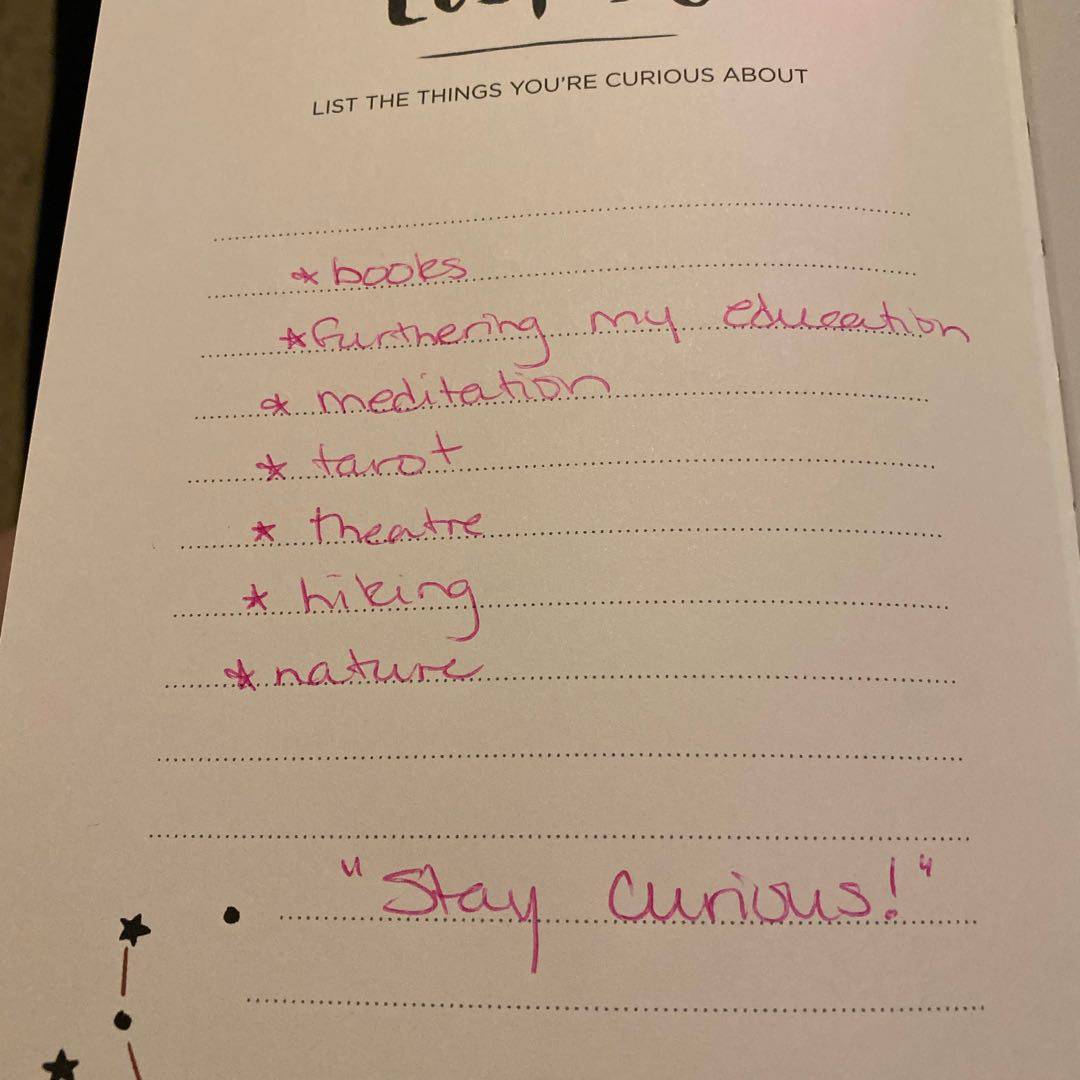 LIST THE THINGS YOU'RE CURIOUS ABOUT
* books
* furthering my education
* meditation
* tarot
* theatre
* hiking
* nature
"Stay curious!"